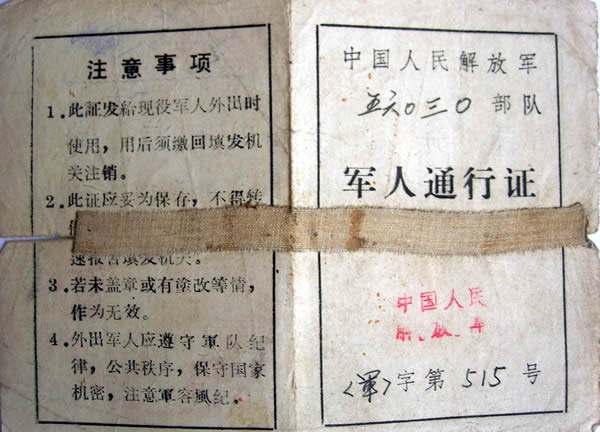 注意事项
1.此証发给现役军人外出时
使用，用后须繳回填发机
关注销。
2.此证应妥为保存，不得转
速报告填发机关。
3.若未盖章或有塗改等情，
作为无效。
4.外出军人应遵守軍队紀
律，公共秩序，保守国家
机密，注意軍容風纪。
中国人民解放军
五六〇三〇部队
军人通行证
中国人民
解放军
〈军〉字第 515 号